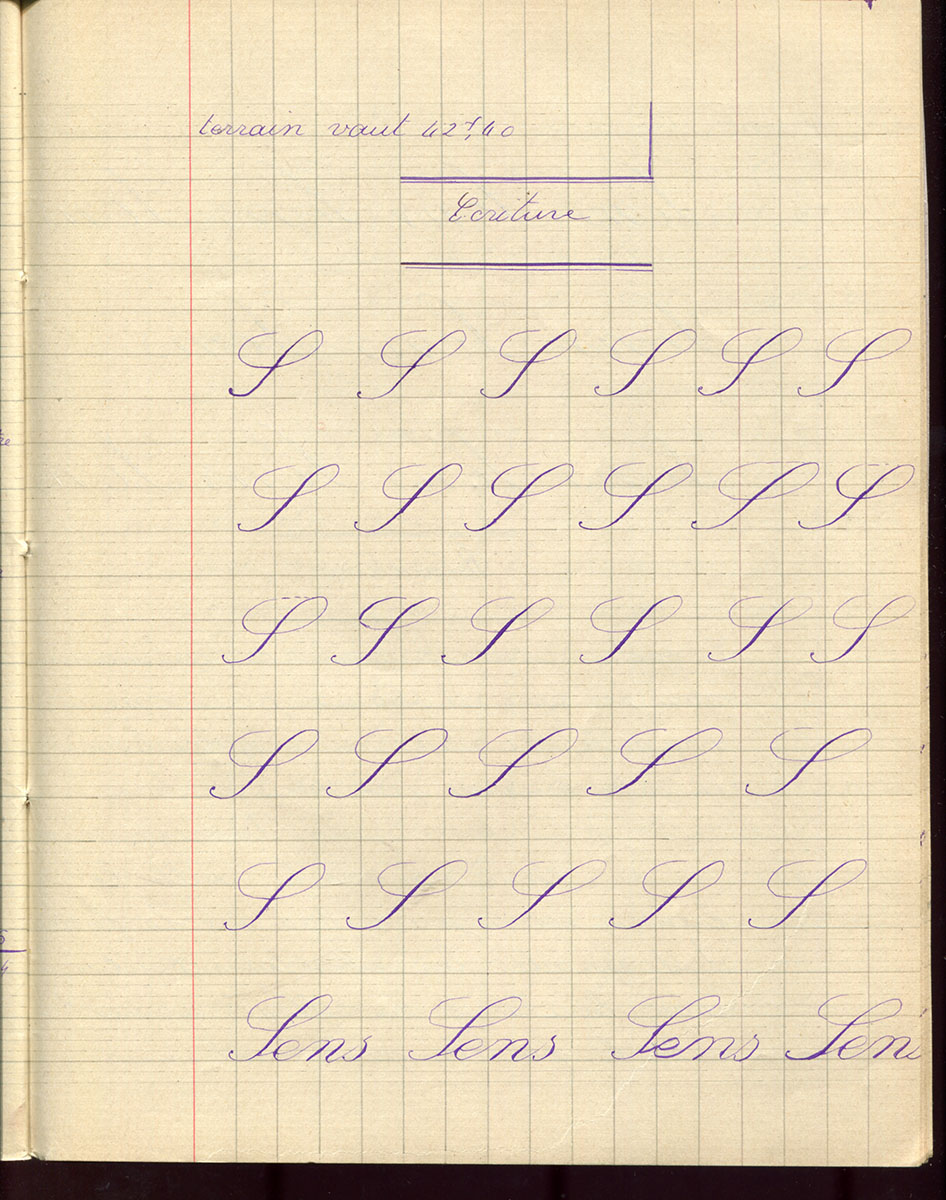 terrain vaut 42f,40
Ecriture
S S S S S S
S S S S S S
S S S S S S
S S S S S
S S S S S
Sens Sens Sens Sens